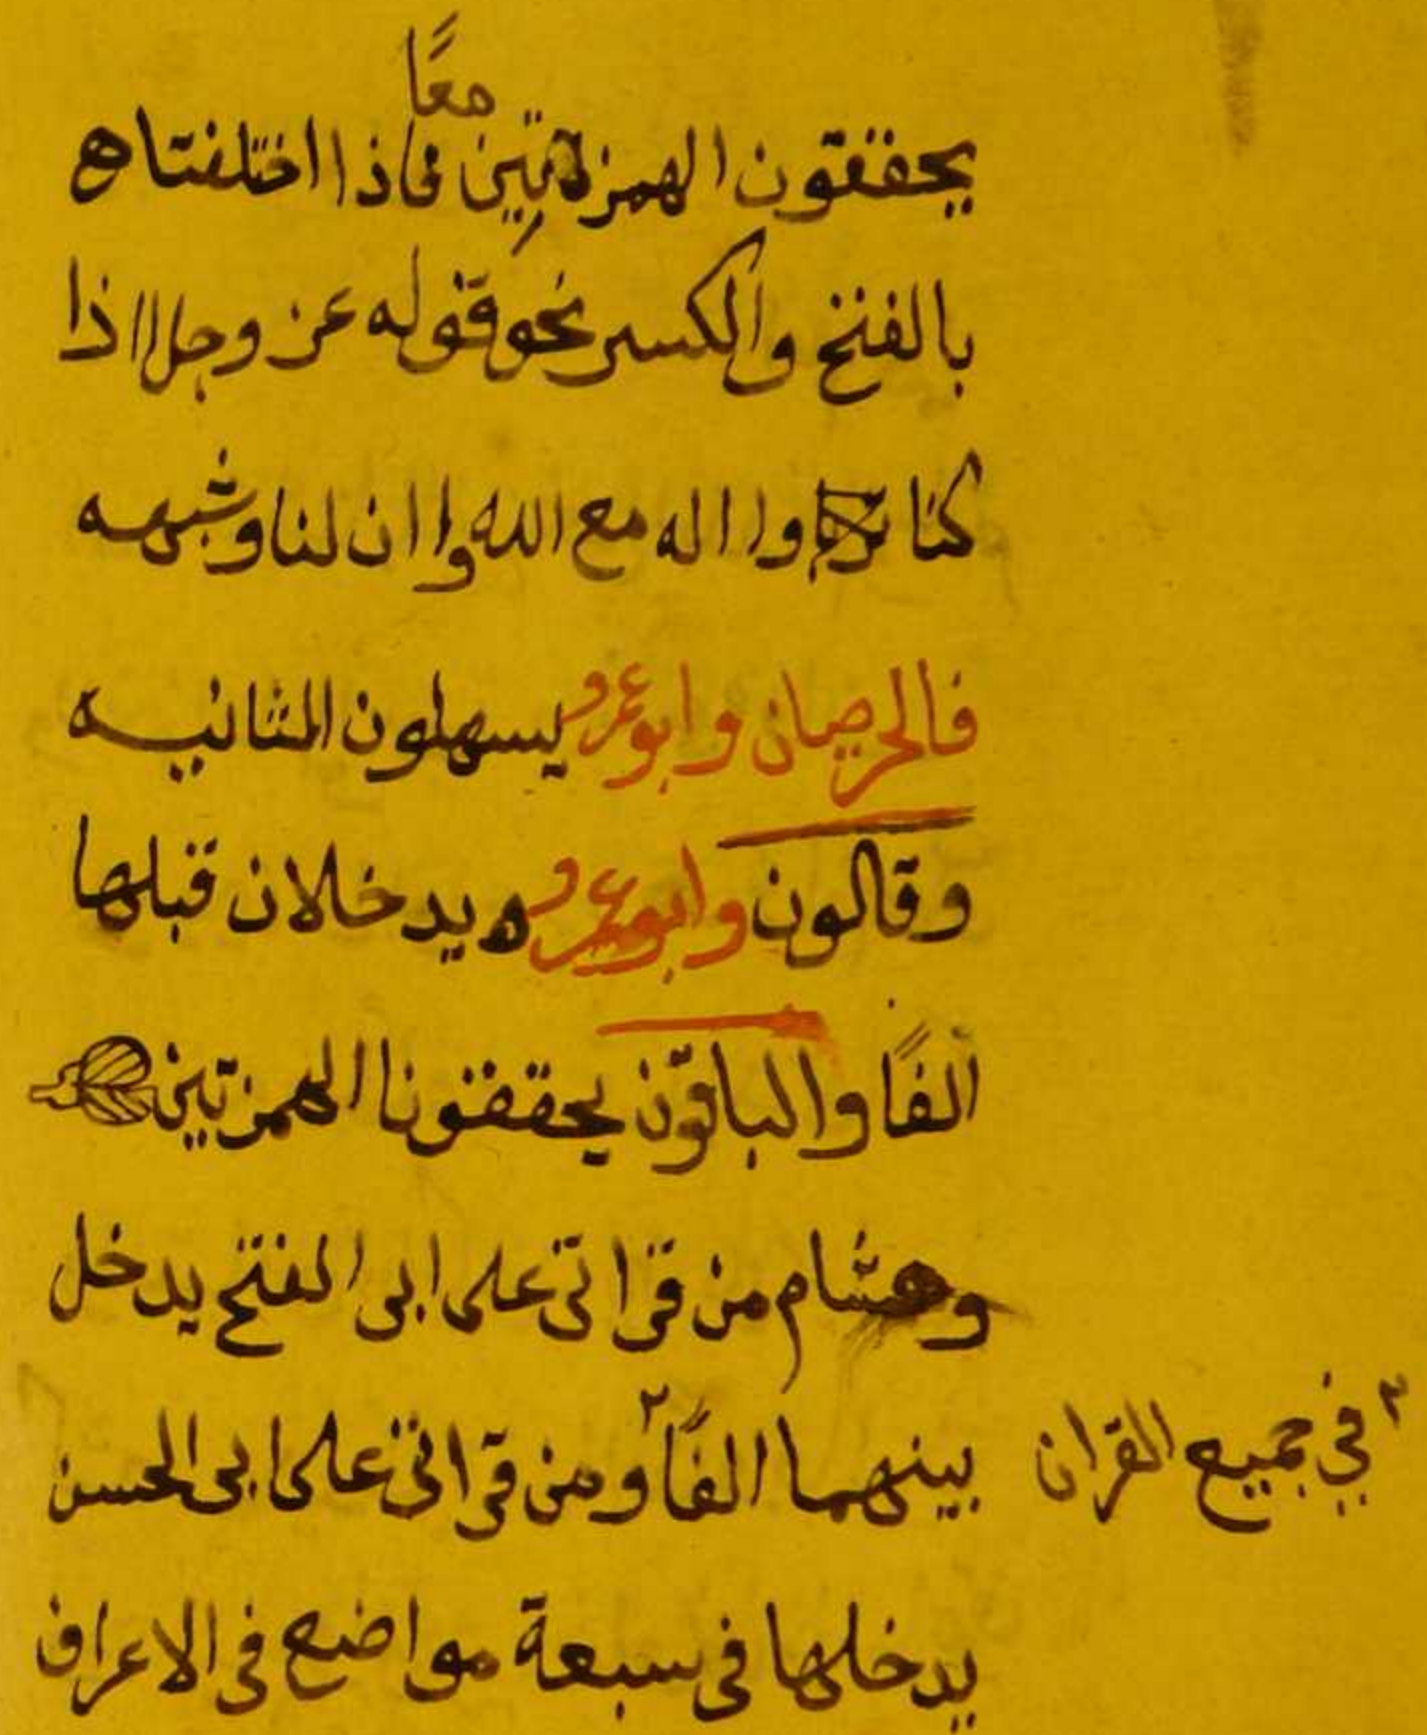 معًا
يحققون الهمزتين فاذا اختلفتا ه
بالفتح والكسر نحو قوله عز وجل ااذا
كنا ترابا واا له مع الله واان لنا وشبهه
فالحرميان وابو عمرو يسهلون الثانيه
وقالون وابو عمرو ه يدخلان قبلها
الفًا والباقون يحققونا الهمزتين
وهشام من قراتى على ابى الفتح يدخل
بينهما الفًا ٢ ومن قراتى على ابى الحسن
٢ في جميع القران
يدخلها فى سبعة مواضع فى الاعراف